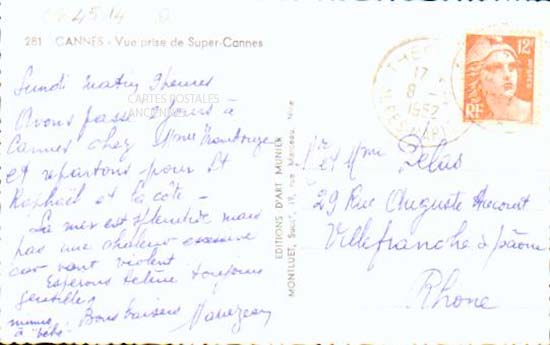 281 CANNES - Vue prise de Super-Cannes
Lundi matin 9 heures
Avons passé jours à
Cannes chez Mme
et repartons pour St
Raphaël et la côte -
La mer est splendide mais
pas une chaleur excessive
car vent violent
Espérons toujours
gentille
minus Bons baisers
à "bébé"
CARTES POSTALES
ANCIENNES
EDITIONS D'ART MUNIER
MONTLUET, Succr, 19, rue Marceau, Nice
THE
17
8 -
1952
12F
RF
Mr et Mme Pelus
29 Rue Auguste
Villefranche s/ Saône
Rhône